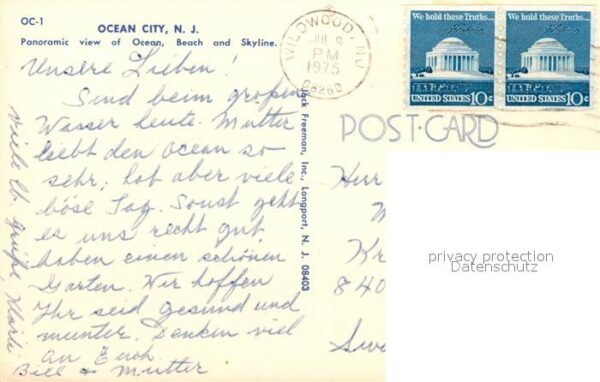 OC-1
OCEAN CITY, N. J.
Panoramic view of Ocean, Beach and Skyline.
WILDWOOD, NJ
PM
1975
08260
We hold these Truths...
We hold these Truths...
UNITED STATES 10c
UNITED STATES 10c
POST-CARD
Jack Freeman, Inc., Longport, N. J. 08403
Unsere Lieben!
Sind beim großen
Wasser heute. Mutter
liebt den Ocean so
sehr, hat aber viele
böse Tag. Sonst geht
es uns recht gut
haben einen schönen
Garten. Wir hoffen
Ihr seid gesund und
munter. Denken viel
an Euch.
Bill & Mutter
Viele lb. Grüße,
Herr
Kr
840
privacy protection
Datenschutz